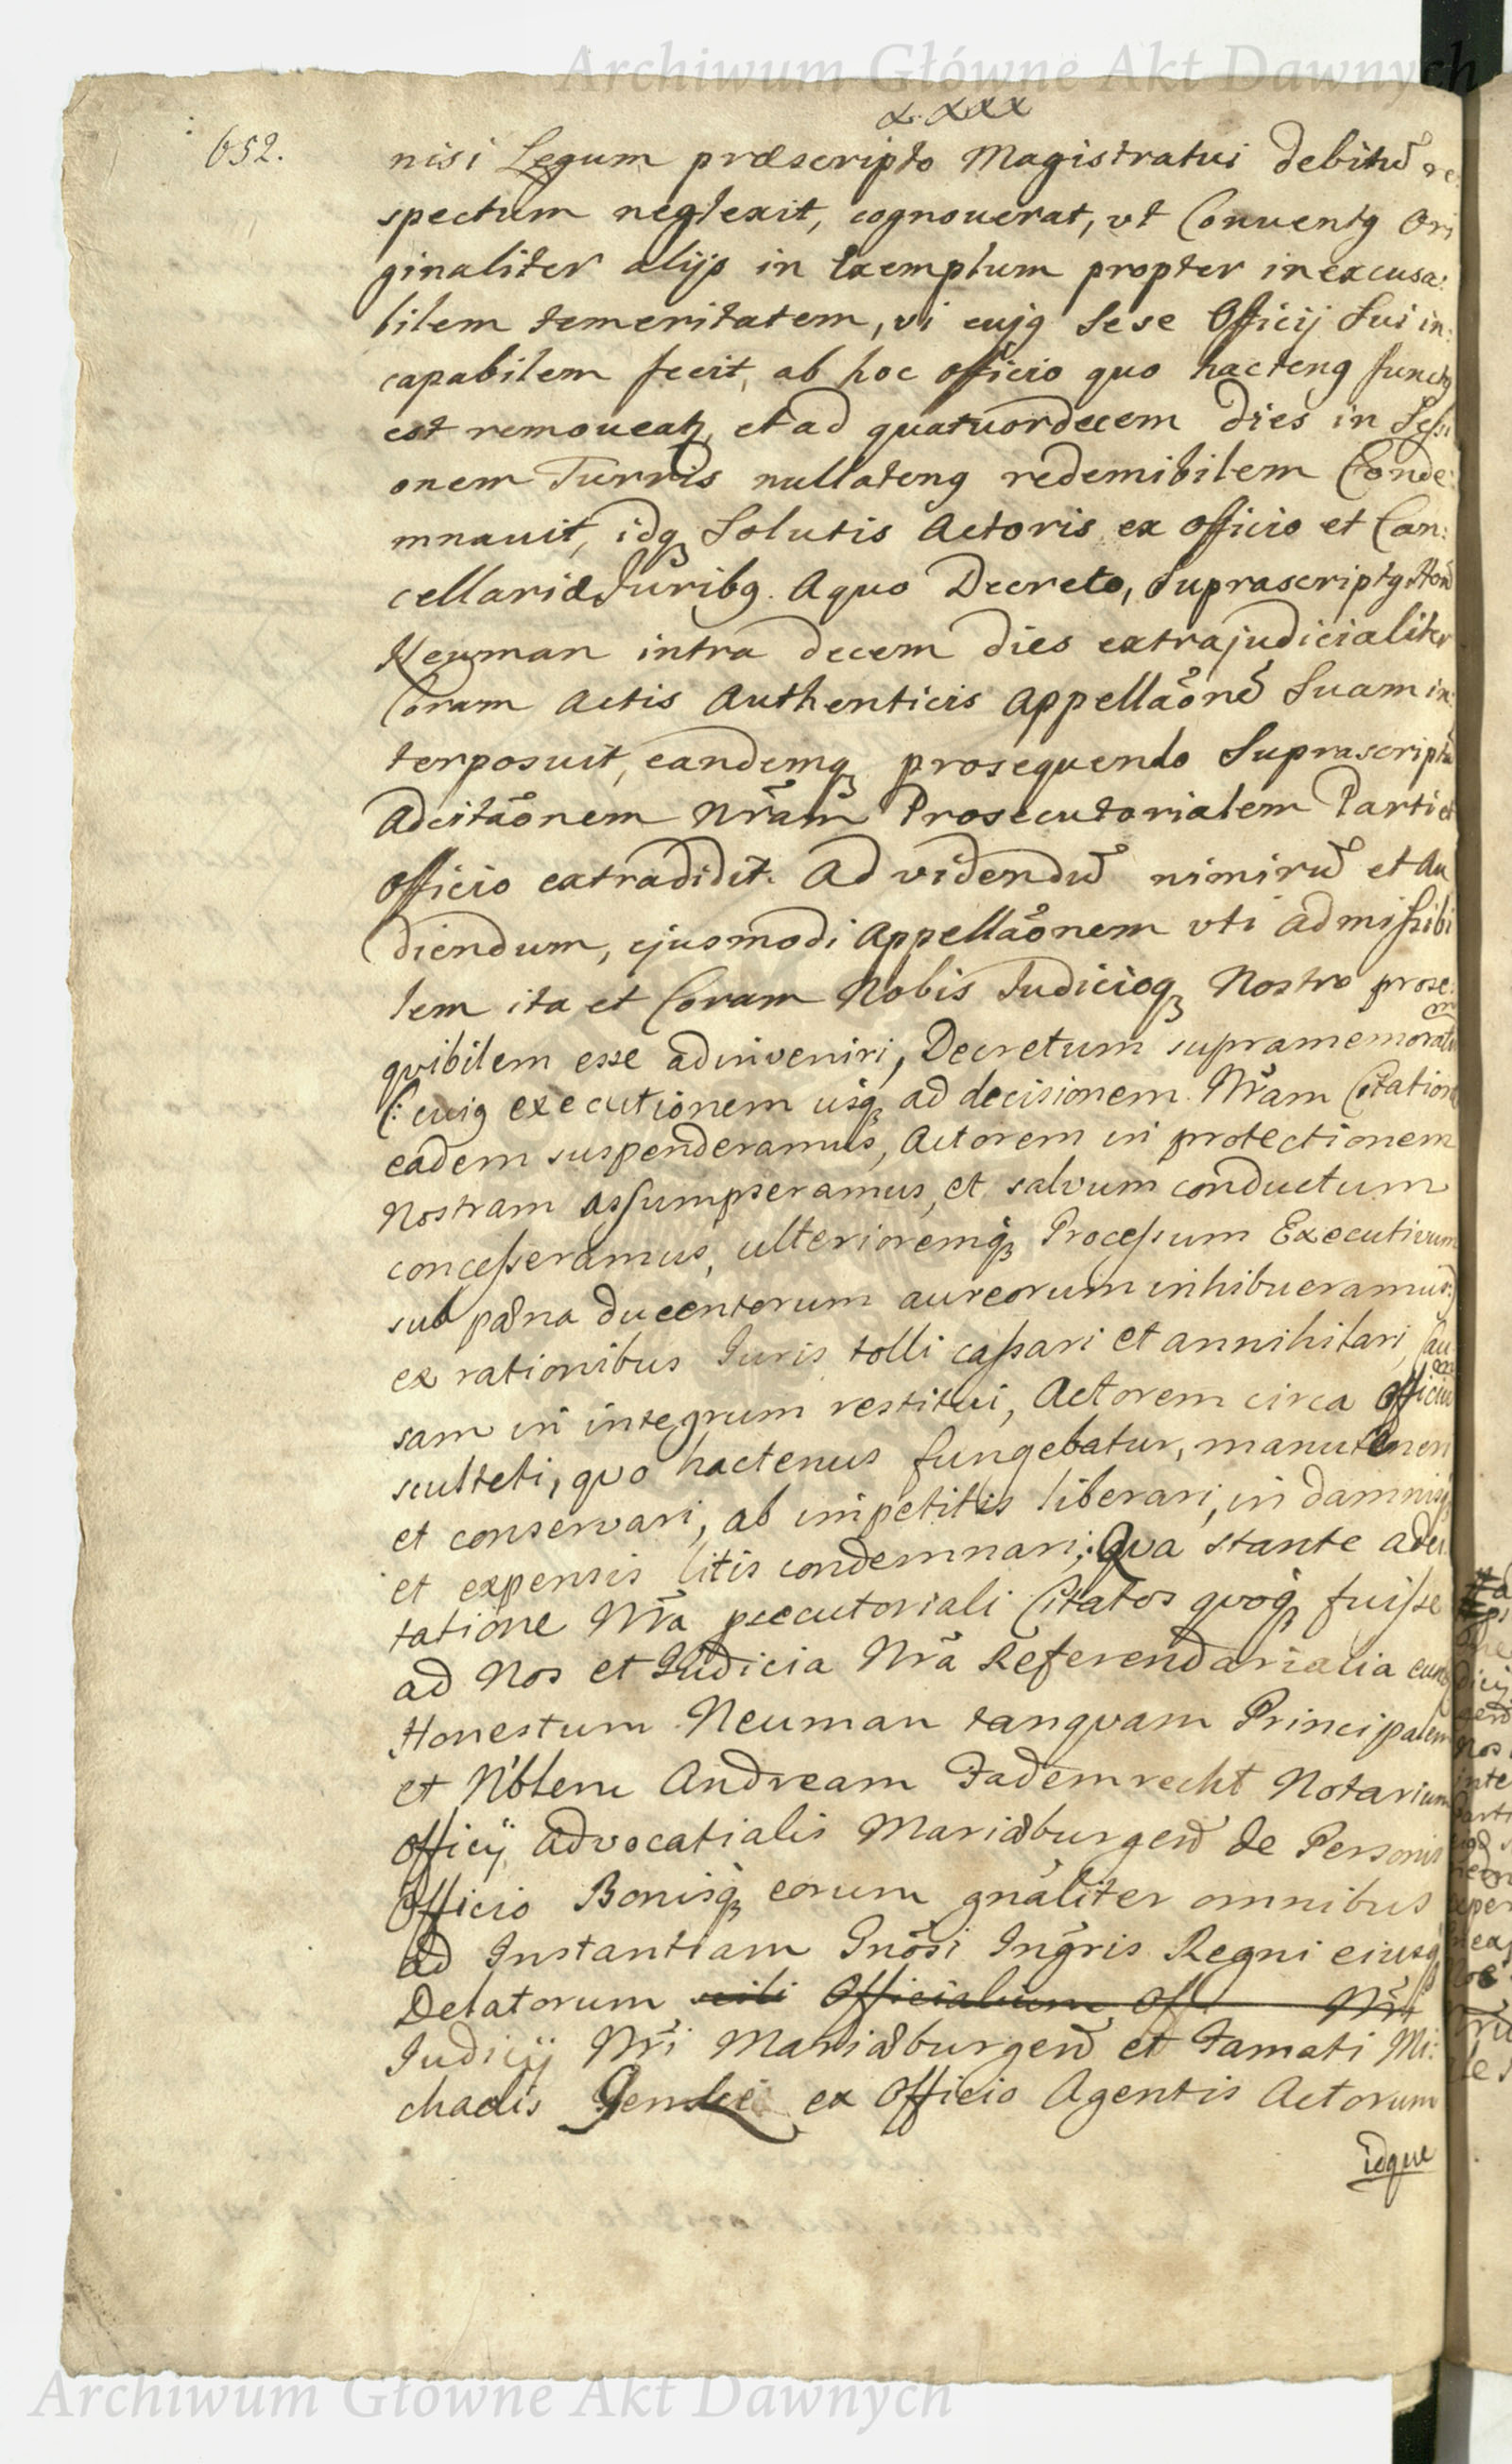 Archiwum Główne Akt Dawnych
652.
nisi Legum præscripto Magistratui debitũ re:
spectum neglexit, cognouerat, vt Conuentq Ori
ginaliter alijs in Exemplum propter inexcusa:
bilem temeritatem, vi cujq sese Officij Sui in:
capabilem fecit, ab hoc officio quo hactenq functq
est remoueatz, et ad quatuordecem dies in Sessi
onem Turris nullatenq redemibilem Conde:
mnauit, idq Solutis Actoris ex officio et Can:
cellariæ Juribq. A quo Decreto, Suprascriptq Hon̄
Neuman intra decem dies extrajudicialiter
Coram Actis Authenticis Appellãonẽ Suam in
terposuit, eandemq prosequendo Suprascriptã
Adcitãonem Nr̃am Prosecutorialem Parti et
Officio extradidit. Ad videndũ nimirũ et Au
diendum, ejusmodi Appellãonem vti admissibi
lem ita et Coram Nobis Judicioq Nostro prose:
quibilem esse adinveniri, Decretum supramemoratum
(: cuiq executionem usq ad decisionem Nr̃am Citatione
eadem suspenderamus, Actorem in protectionem
Nostram assumpseramus, et salvum conductum
concesseramus, ulterioremq Processum Executivum
sub pæna ducentorum aureorum inhibueramus:)
ex rationibus Juris tolli cassari et annihilari, Cau
sam in integrum restitui, Actorem circa Officium
sculteti, quo hactenus fungebatur, manutenen
et conservari, ab impetitis liberari, in damnisq
et expensis litis condemnari; Qva stante adci
tatione Nr̃a psecutoriali Citatos qvoq fuisse
ad Nos et Judicia Nr̃a Referendarialia eum
Honestum Neuman tanqvam Principalem
et N'blem Andream Fademrecht Notarium
Officij advocatialis Mariæburgen̄ de Personis
Officio Bonisq eorum gnãliter omnibus
ad Instantiam Gnõsi Ingr̃is Regni eiusq
Delatorum Officialium Of Nr̃i
Judicij Nr̃i Mariæburgen̄ et Famati Mi:
chaelis ex Officio Agentis Actorum
idque
Archiwum Główne Akt Dawnych